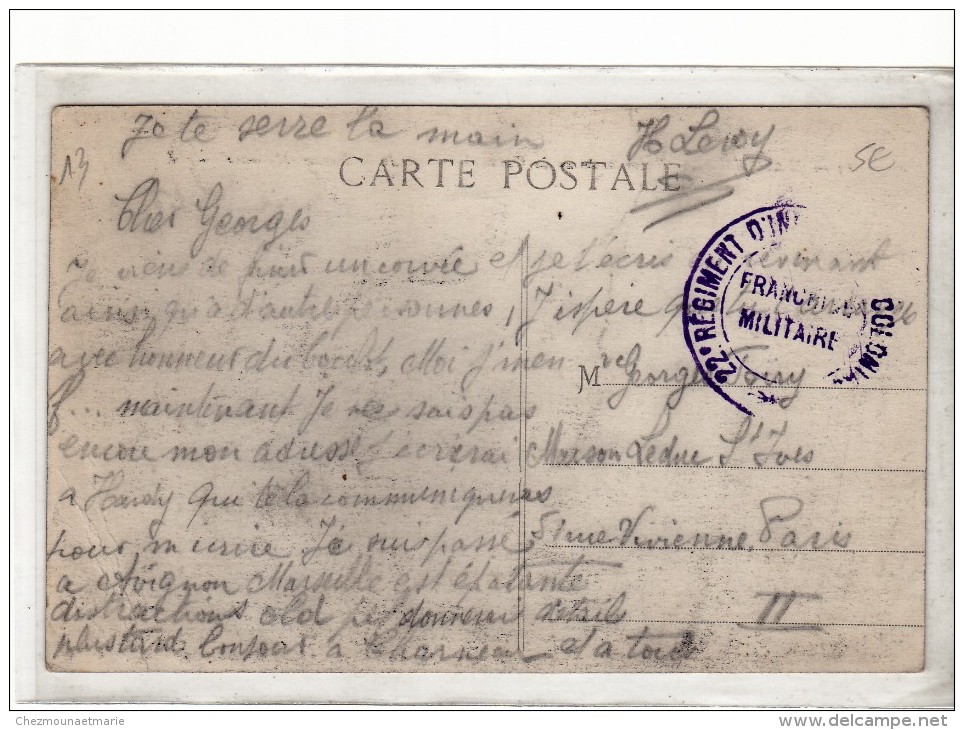 Je te serre la main H Levy
13
5€
CARTE POSTALE
Cher Georges
Je viens de finir un corvée et je t'écris
ainsi qu'à d'autres personnes, J'espère que
avec honneur du bocal, Moi j'men
f... maintenant Je ne sais pas
encore mon adresse j'écrirai
a Hardy qui te la communiqueras
pour m'ecrire. Je suis passé
a Avignon Marseille est épatante
distractions old je donnerai détail
plus tard Bonjour à et a tous
22e RÉGIMENT D'IN COLONIA
FRANCHISE
MILITAIRE
M r Georges
Maison Leduc St Yves
51 rue Vivienne Paris
II
Chezmounaetmarie
www.delcampe.net